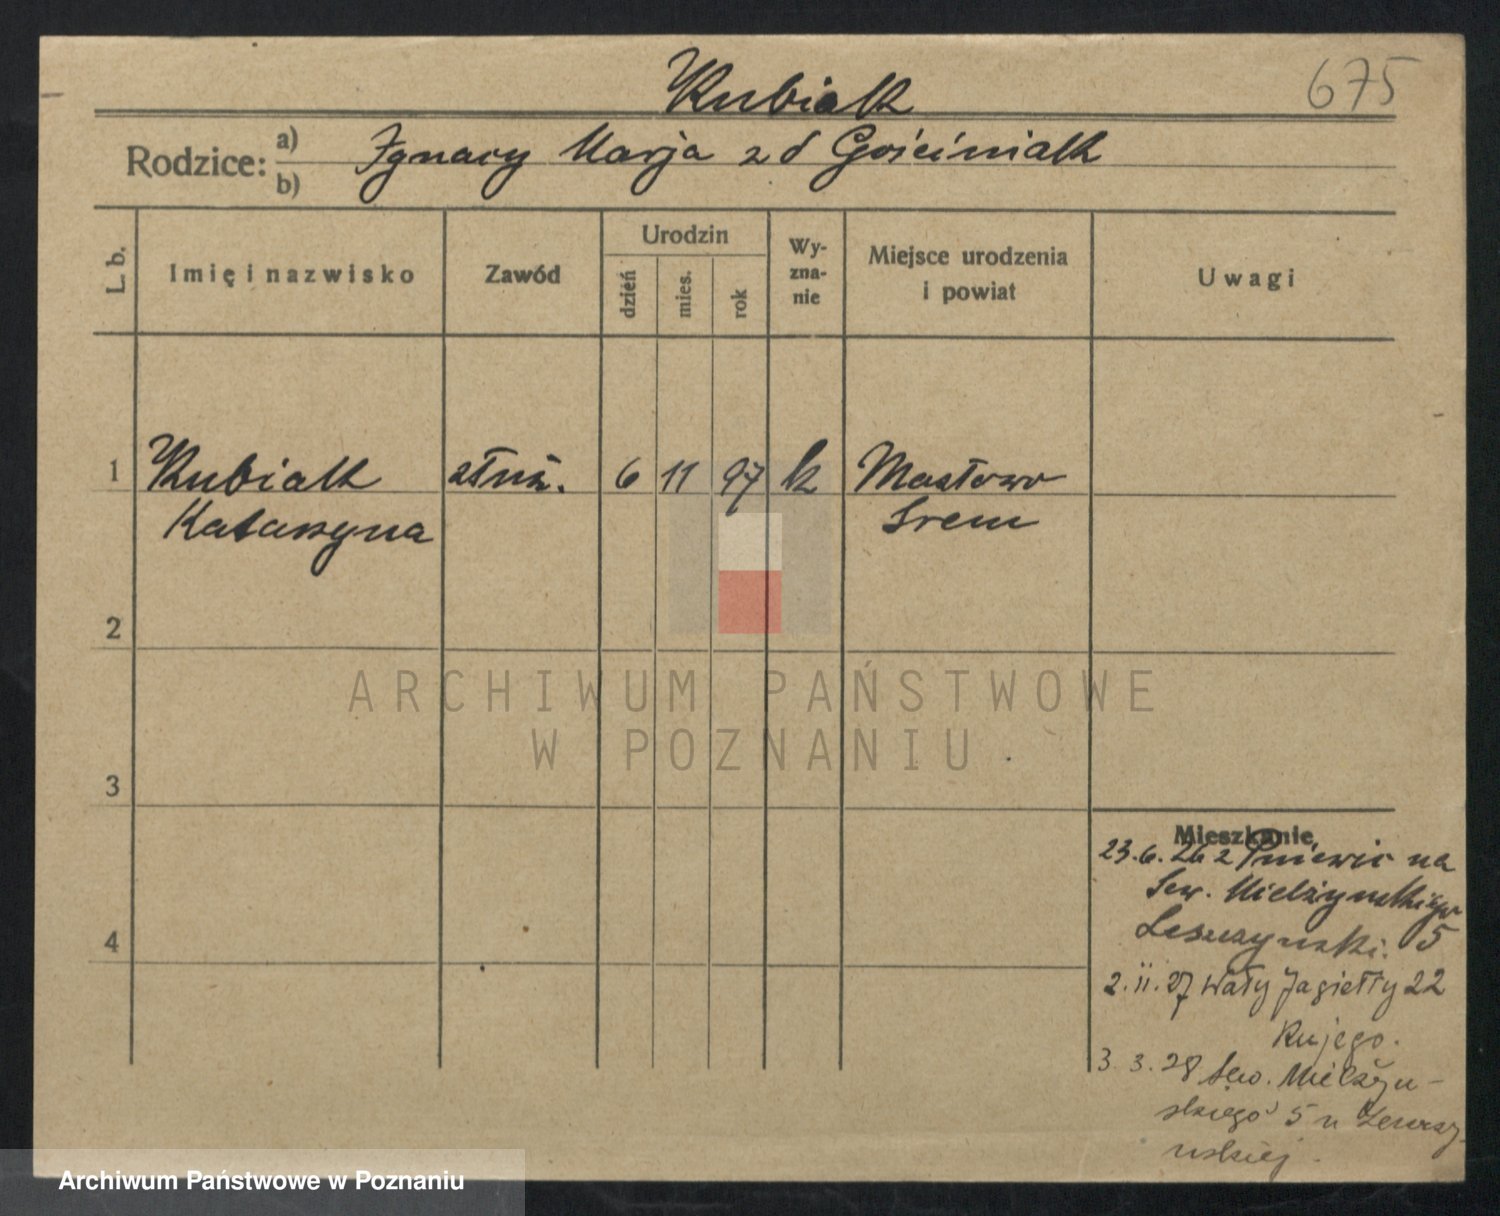 Kubiak
675
Rodzice: a) b)
Ignacy Marja z d Gościniak
L. b.
Imię i nazwisko
Zawód
Urodzin
dzień
mies.
rok
Wy-
zna-
nie
Miejsce urodzenia
i powiat
Uwagi
1 Kubiak służ. 6 11 97 k Masłowo
Katarzyna Śrem
2
3
4
ARCHIWUM PAŃSTWOWE
W POZNANIU
Mieszkanie
23.6.26 z Pniewic na
Sew. Mielżyńskiego
5
2.11.27 Wały Jagiełły 22
3.3.28 Sew. Mielżyń-
skiego 5 u
Archiwum Państwowe w Poznaniu